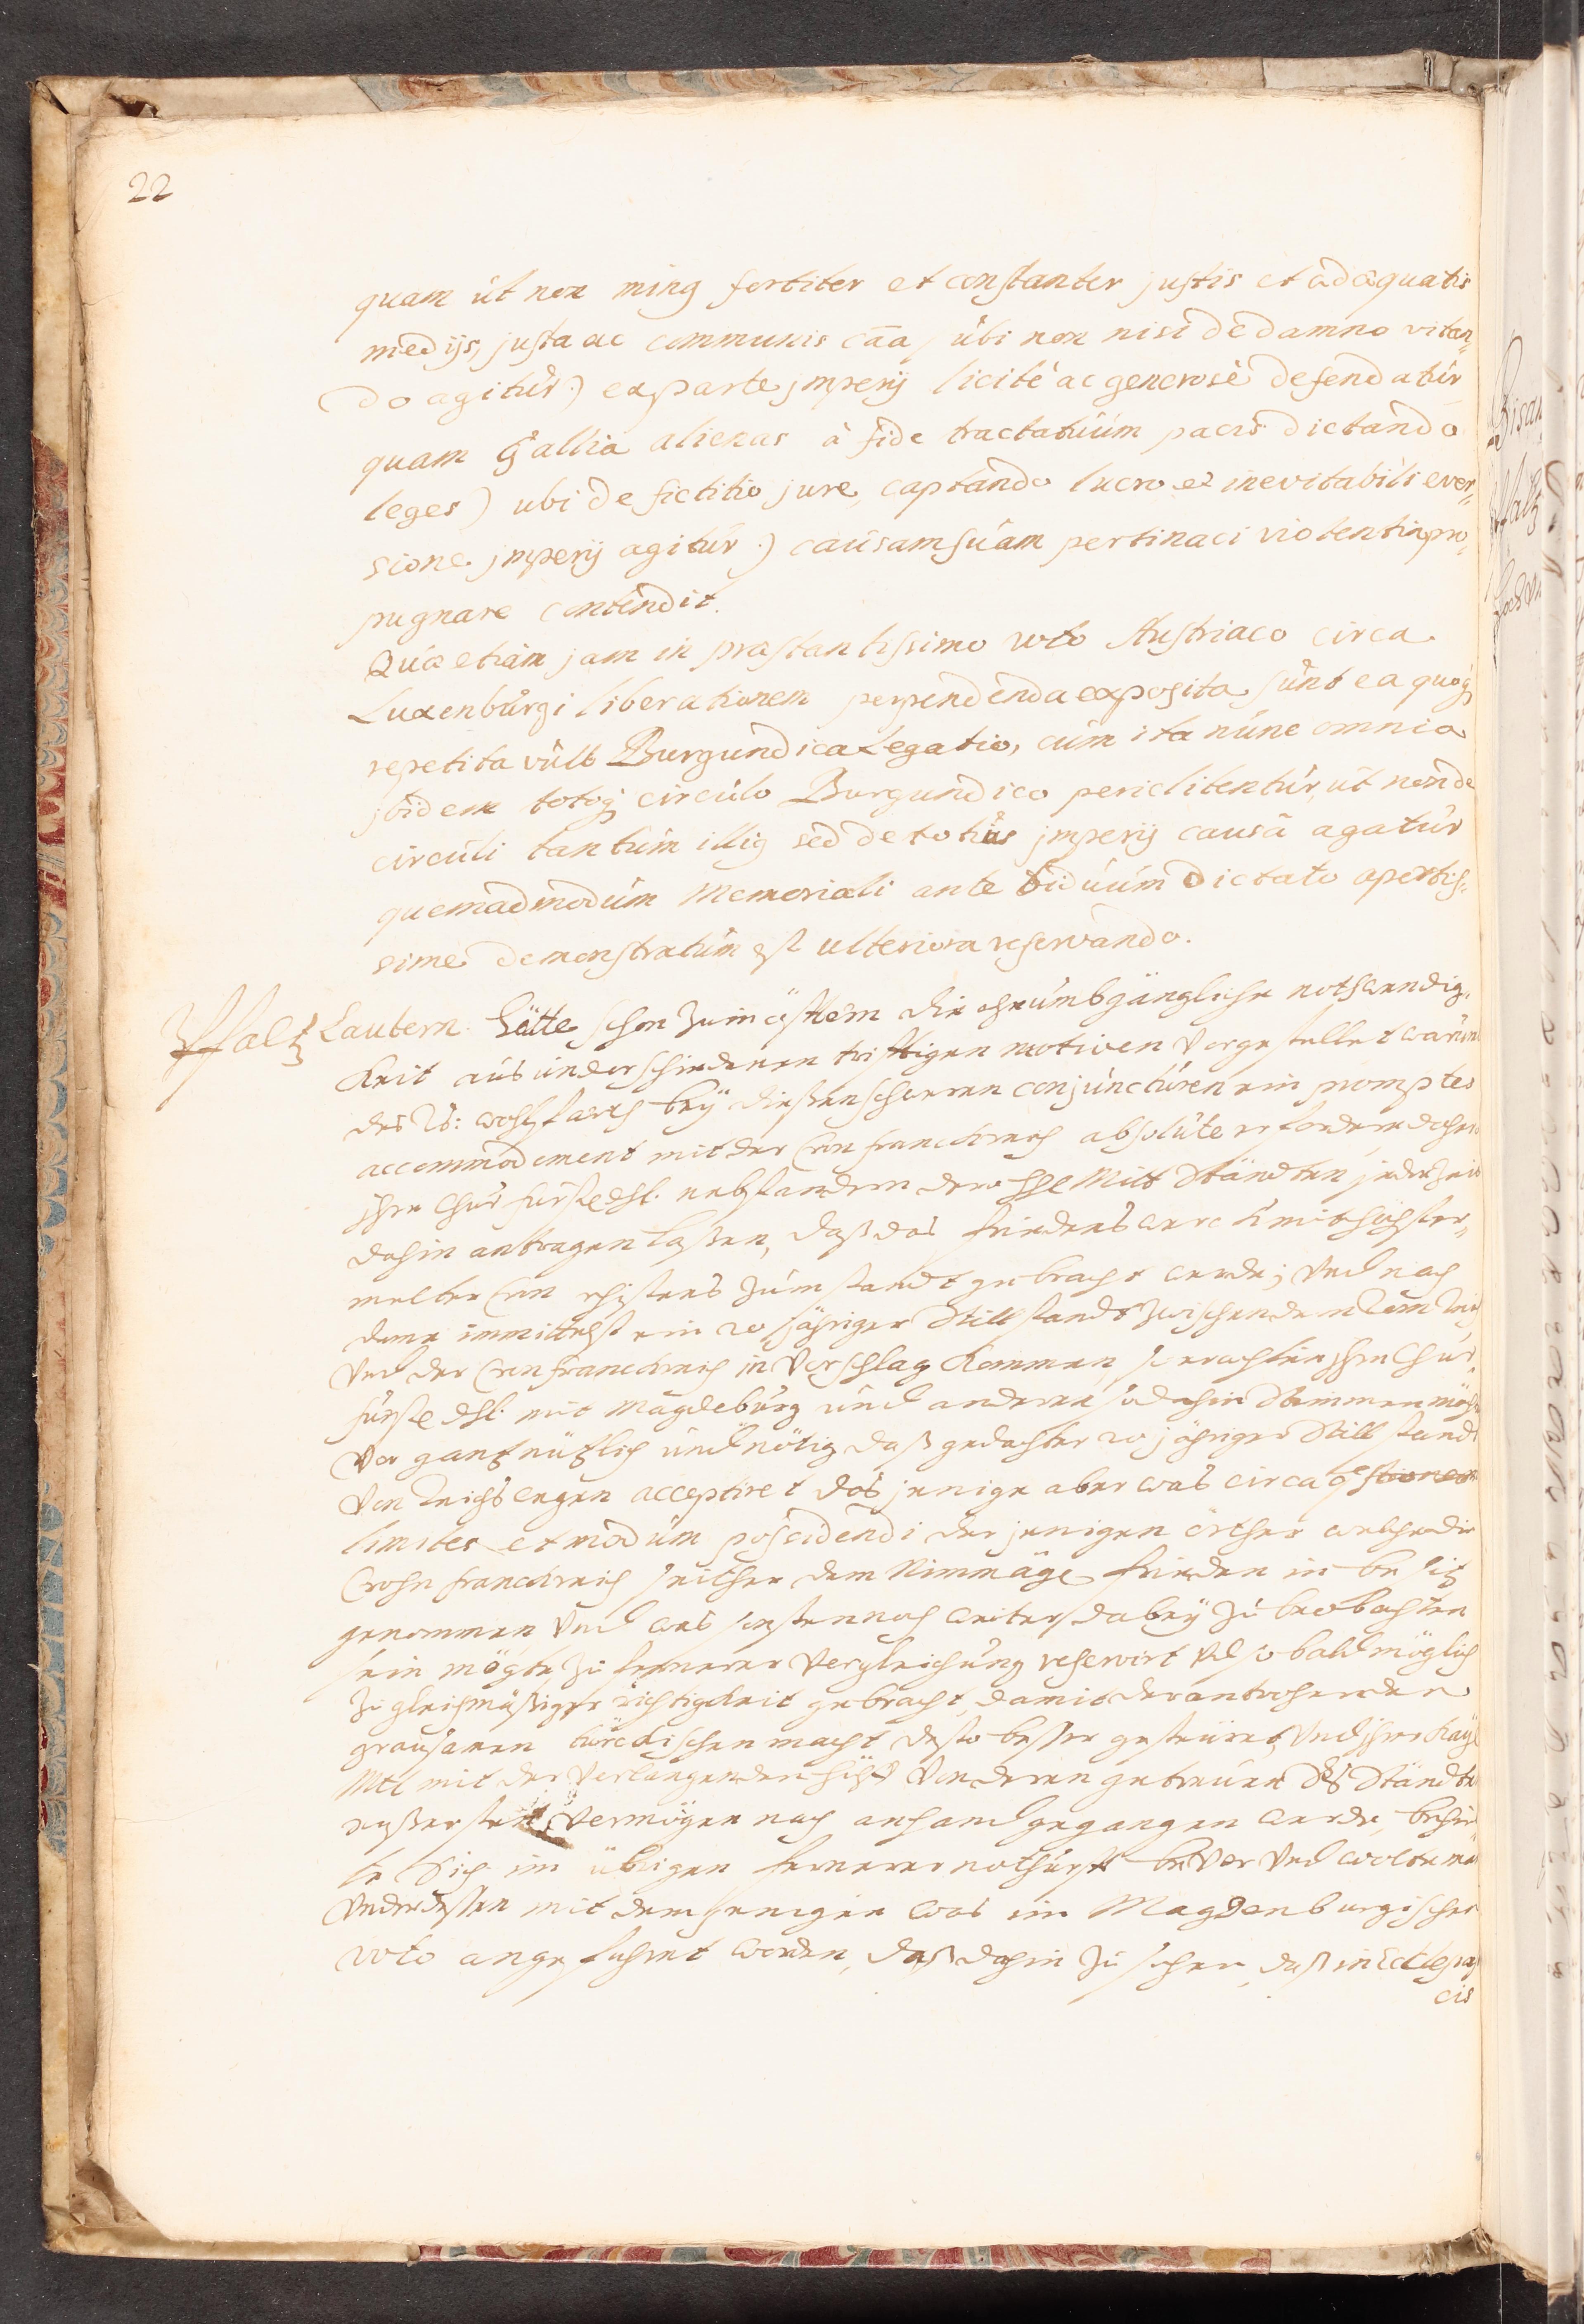 22
quam ut non ming fortiter et constanter justis et adæquatis
medijs, justa ac communis cāa, ubi non nisi de damno vitan„
do agitur:) ex parte jmperij licitè ac generosè defendatur
quam Gallia alienas à fide tractatuum pacis dictando
leges) ubi de fictitio jure, captando lucro et inevitabili ever„
sione jmperij agitur:) causam suam pertinaci violentia pro„
pugnare contendit.
Quia etiam jam in præstantissimo voto Austriaco circa
Luxenburgi liberationem perpendenda exposita sunt ea quoq
repetita vult Burgundica Legatio, cum ita nunc omnia
jbidem totoq circulo Burgundico periclitentur, ut non de
circuli tantum illig sed de totius jmperij causâ agatur
quemadmodum Memoriali ante biduum dictato apertis„
sime demonstratum est ulteriora reservando.
Pfaltz Lautern. Hätte schon zum öfftern die ohnumbgängliche nothwendig„
keit aus underschiedenen trifftigen motiven vorgestellet warumb
des Rs: wohlfarth bey diesen schweren conjuncturen ein promptes
accommodement mit der Cron Franckreich absolute erfordere dahero
jhre Churfürstl dhl. nebst andern dero Mitt Ständten jederzeit
dahin antragen laßen, daß das friedens werck mit höchster„
melter Cron ehistens zum standt gebracht werde; Und nach
deme immittelst ein 20 jähriger Stillstandt zwischen dem Röm Reich
Und der Cron Franckreich in Vorschlag kommen, so erachten jhre Chur„
fürstl dhl. mit Magdeburg und anderen so dahin stimmen möchten
Vor gantz nützlich und nötig daß gedachter 20 jähriger Stillstandt
Von Reichswegen acceptiret das jenige aber was circa
limites et modum possidendi der jenigen örther welche die
Crohn Franckreich seither dem Nimmäg. Frieden in besitz
genommen Und was sonsten noch weiters dabey zu beobachten
sein mögte zu fernerer Vergleichung reservirt Und so bald möglich
zu gleichmäßiger richtigkeit gebracht, damit der antrohenden
grausamen türckischen macht desto besser gesteüret, Und jhrer Kayl
Mtt mit der Verlangenden hülff Von deren getreuen Ständten
eußersten Vermögen nach anhand gegangen werde, behiel„
te Sich im übrigen fernerer nothurfft bevor Und wolte man
Underdessen mit demjenigen was im Magdenburgischen
voto angeführet worden, daß dahin zu sehen, daß in
cis